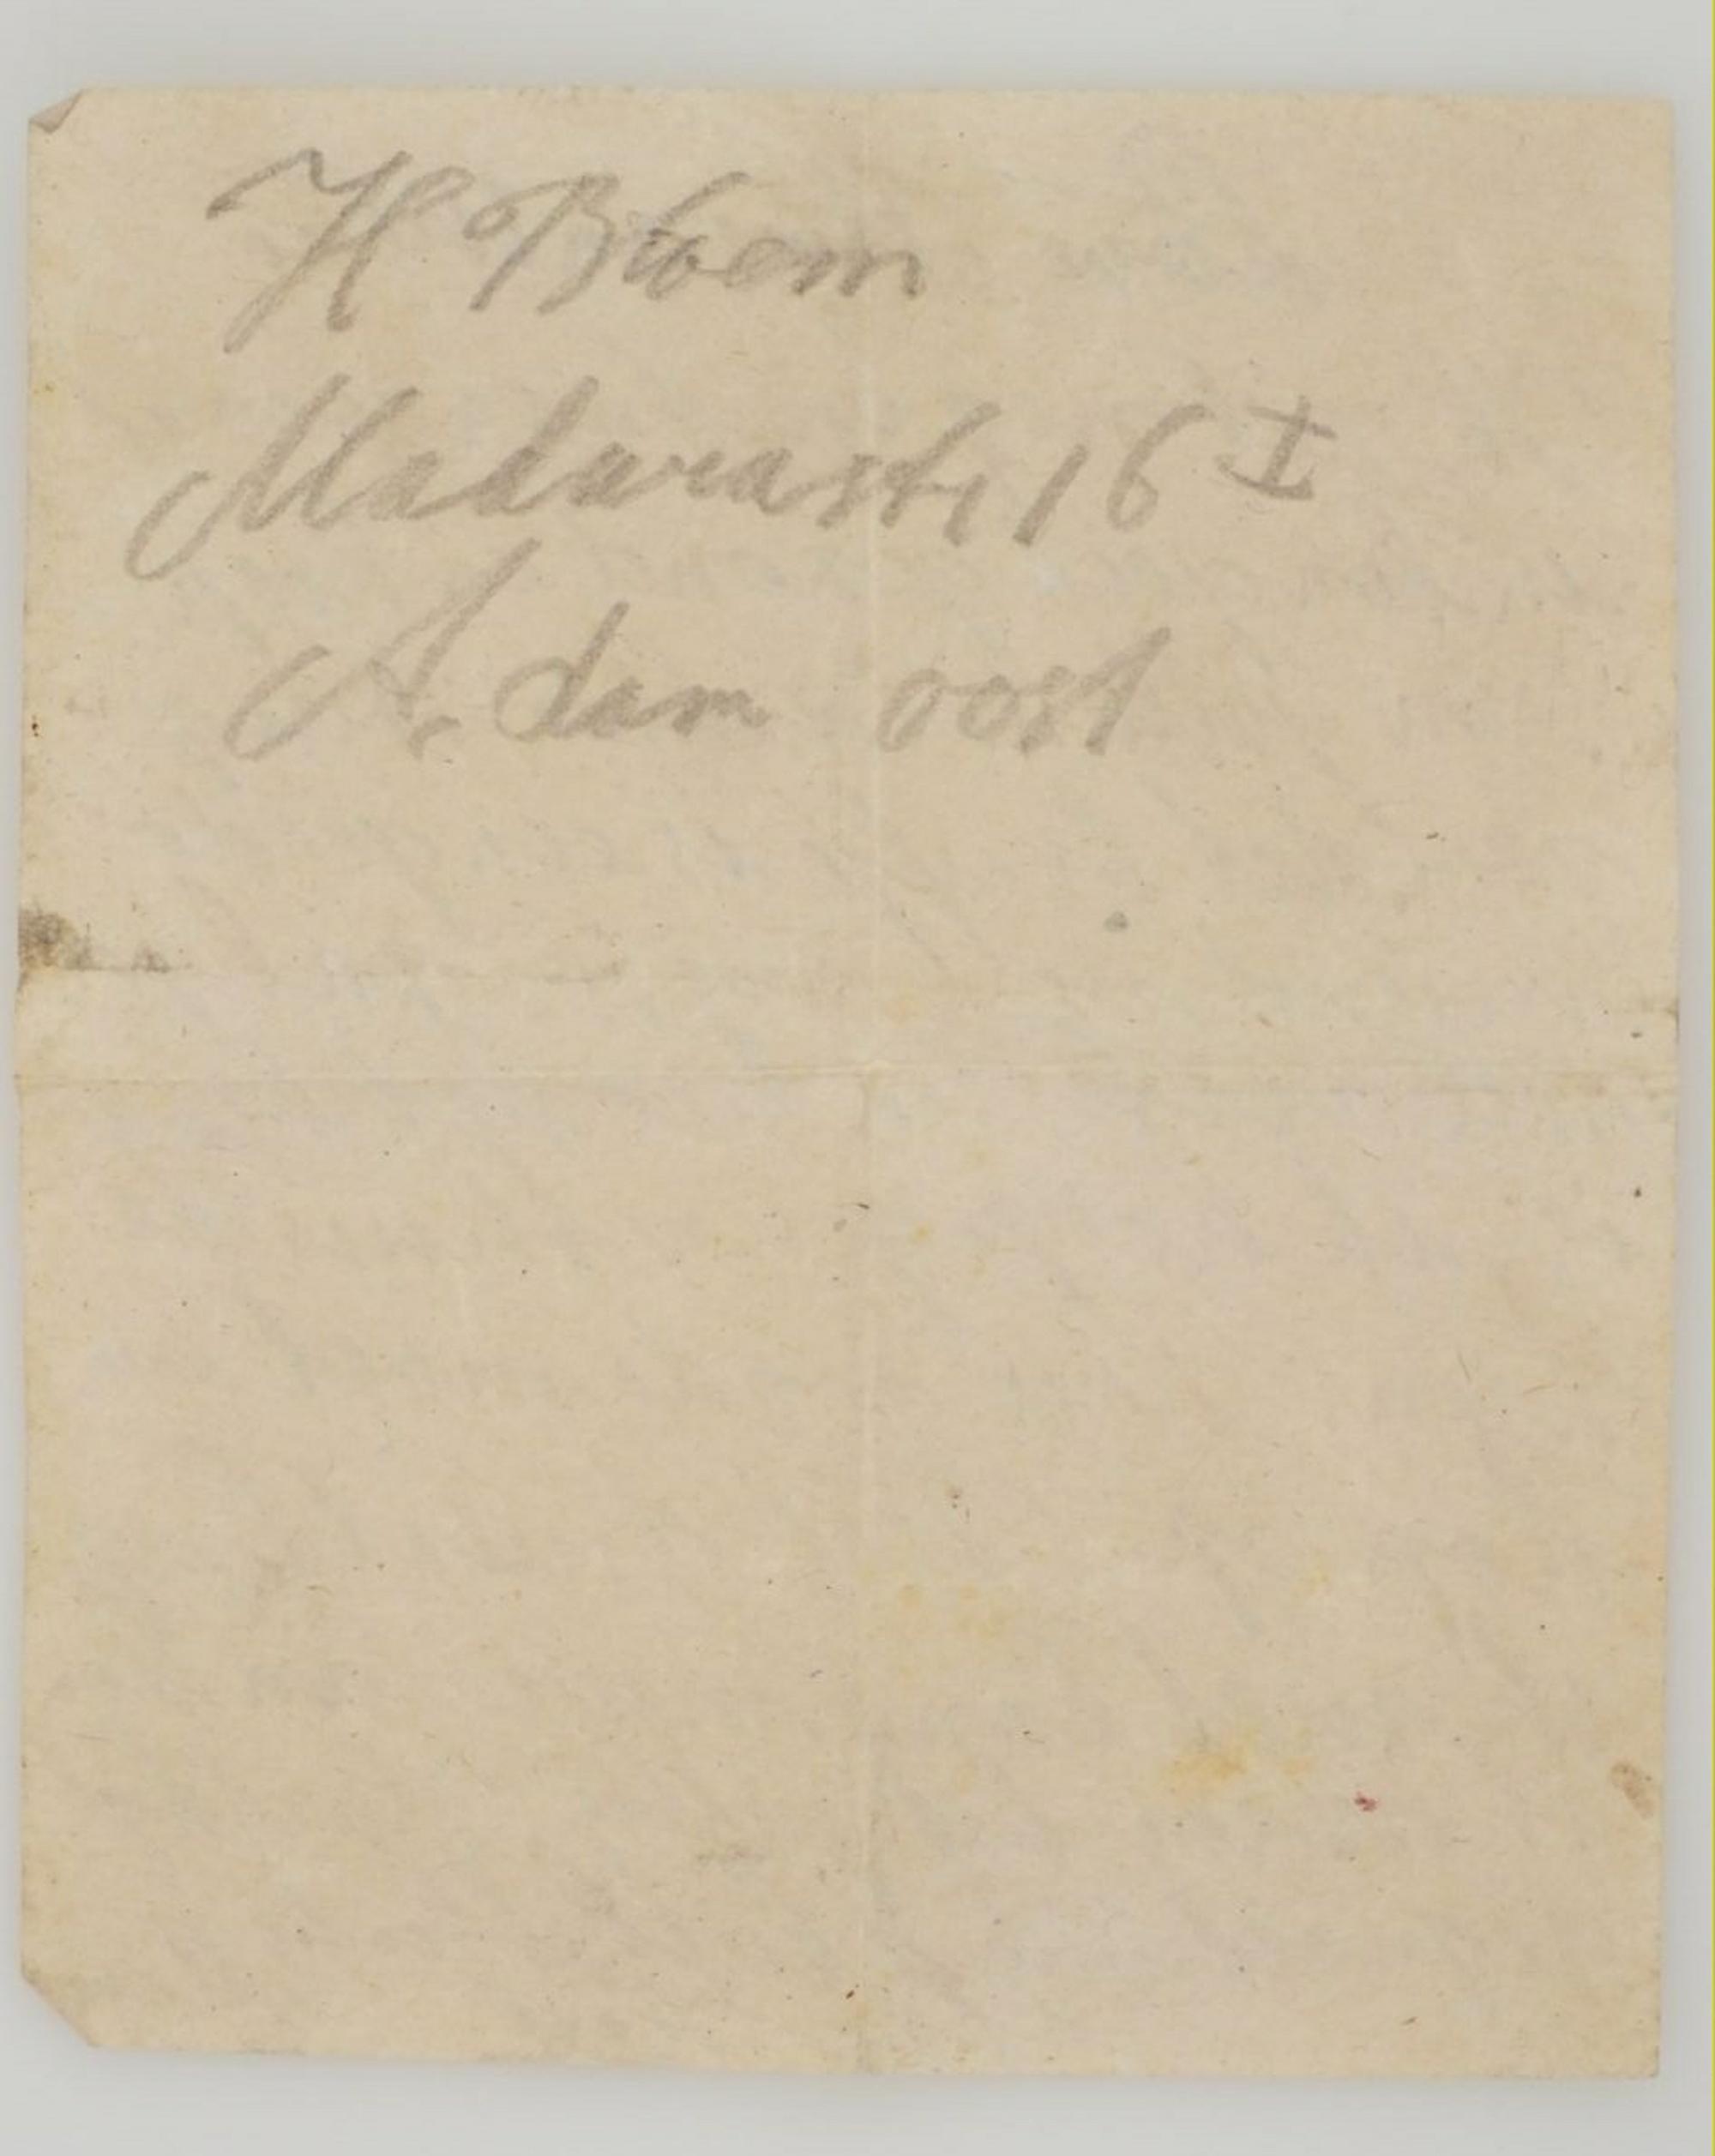 H Bloem
Madurastr 16 I
A. dam oost